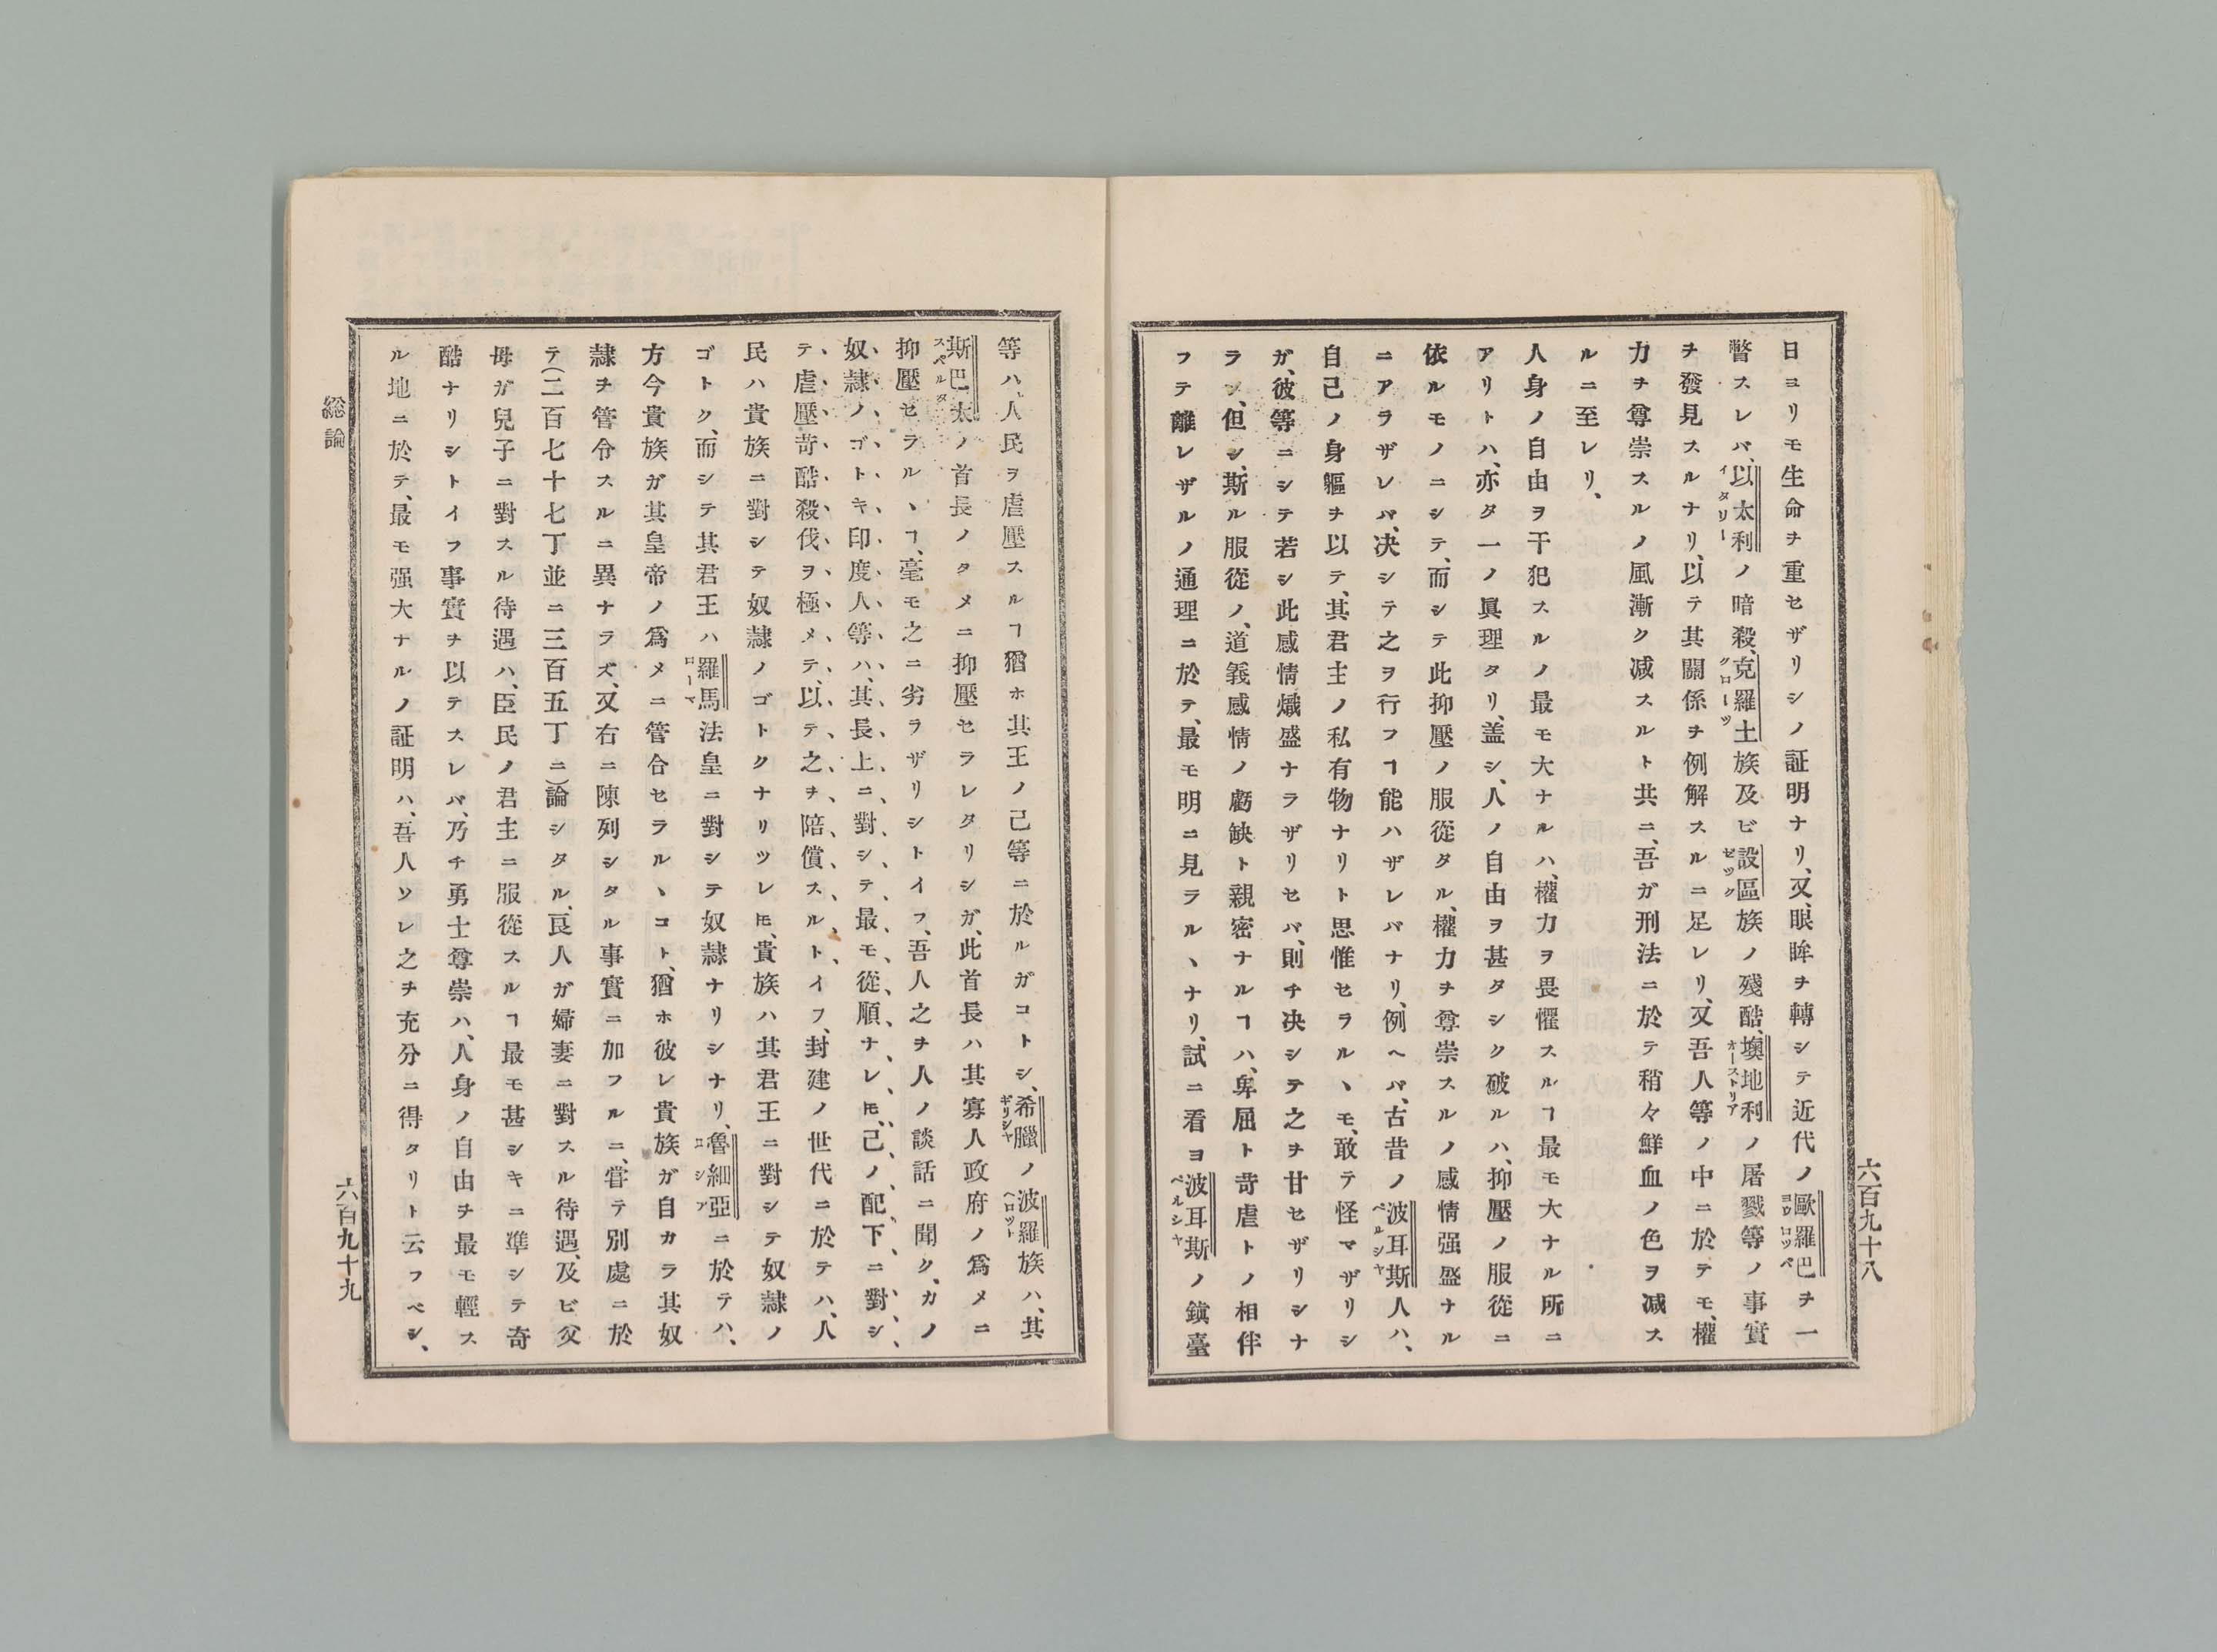 六百九十八
日ヨリモ生命ヲ重セザリシノ証明ナリ、又、眼眸ヲ轉シテ近代ノ歐羅巴ヲ一
ヨウロツパ
瞥スレバ、以太利ノ暗殺、克羅士族及ビ設區族ノ殘酷、墺地利ノ屠戮等ノ事實
イタリー
クローツ
セツク
オーストリア
ヲ發見スルナリ、以テ其關係ヲ例解スルニ足レリ、又吾人等ノ中ニ於テモ、權
力ヲ尊崇スルノ風漸ク減スルト共ニ、吾ガ刑法ニ於テ稍々鮮血ノ色ヲ減ス
ルニ至レリ、
人身ノ自由ヲ干犯スルノ最モ大ナルハ、權力ヲ畏懼スルヿ最モ大ナル所ニ
アリトハ、亦タ一ノ眞理タリ、盖シ、人ノ自由ヲ甚タシク破ルハ、抑壓ノ服從ニ
依ルモノニシテ、而シテ此抑壓ノ服從タル、權力ヲ尊崇スルノ感情强盛ナル
ニアラザレバ、决シテ之ヲ行フヿ能ハザレバナリ、例ヘバ、古昔ノ波耳斯人ハ、
ペルシヤ
自己ノ身軀ヲ以テ、其君主ノ私有物ナリト思惟セラルヽモ、敢テ怪マザリシ
ガ、彼等ニシテ若シ此感情熾盛ナラザリセバ、則チ决シテ之ヲ甘セザリシナ
ラン、但シ、斯ル服從ノ、道義感情ノ虧缺ト親密ナルヿハ、卑屈ト苛虐トノ相伴
フテ離レザルノ通理ニ於テ、最モ明ニ見ラルヽナリ、試ニ看ヨ波耳斯ノ鎭臺
ペルシヤ
等ハ、人民ヲ虐壓スルヿ猶ホ其王ノ己等ニ於ルガコトシ、希臘ノ波羅族ハ、其
ギリシヤ
ヘロツト
斯巴太ノ首長ノタメニ抑壓セラレタリシガ、此首長ハ其寡人政府ノ爲メニ
スペルタ
抑壓セラルヽヿ、毫モ之ニ劣ラザリシトイフ、吾人之ヲ人ノ談話ニ聞ク、カノ
奴隷ノゴトキ印度人等ハ、其長上ニ對シテ最モ從順ナレ𪜈、己ノ配下ニ對シ
テ、虐壓苛酷殺伐ヲ極メテ、以テ之ヲ陪償スルトイフ、封建ノ世代ニ於テハ、人
民ハ貴族ニ對シテ奴隷ノゴトクナリツレ𪜈、貴族ハ其君王ニ對シテ奴隷ノ
ゴトク、而シテ其君王ハ羅馬法皇ニ對シテ奴隷ナリシナリ、魯細亞ニ於テハ、
ローマ
ロシア
方今貴族ガ其皇帝ノ爲メニ管合セラルヽコト、猶ホ彼レ貴族ガ自カラ其奴
隷ヲ管令スルニ異ナラズ、又右ニ陳列シタル事實ニ加フルニ、甞テ別處ニ於
テ(二百七十七丁並ニ三百五丁ニ)論シタル、良人ガ婦妻ニ對スル待遇、及ビ父
母ガ兒子ニ對スル待遇ハ、臣民ノ君主ニ服從スルヿ最モ甚シキニ準シテ奇
酷ナリシトイフ事實ヲ以テスレバ、乃チ勇士尊崇ハ、人身ノ自由ヲ最モ輕ス
ル地ニ於テ、最モ强大ナルノ証明ハ、吾人ソレ之ヲ充分ニ得タリト云フベシ、
総論
六百九十九